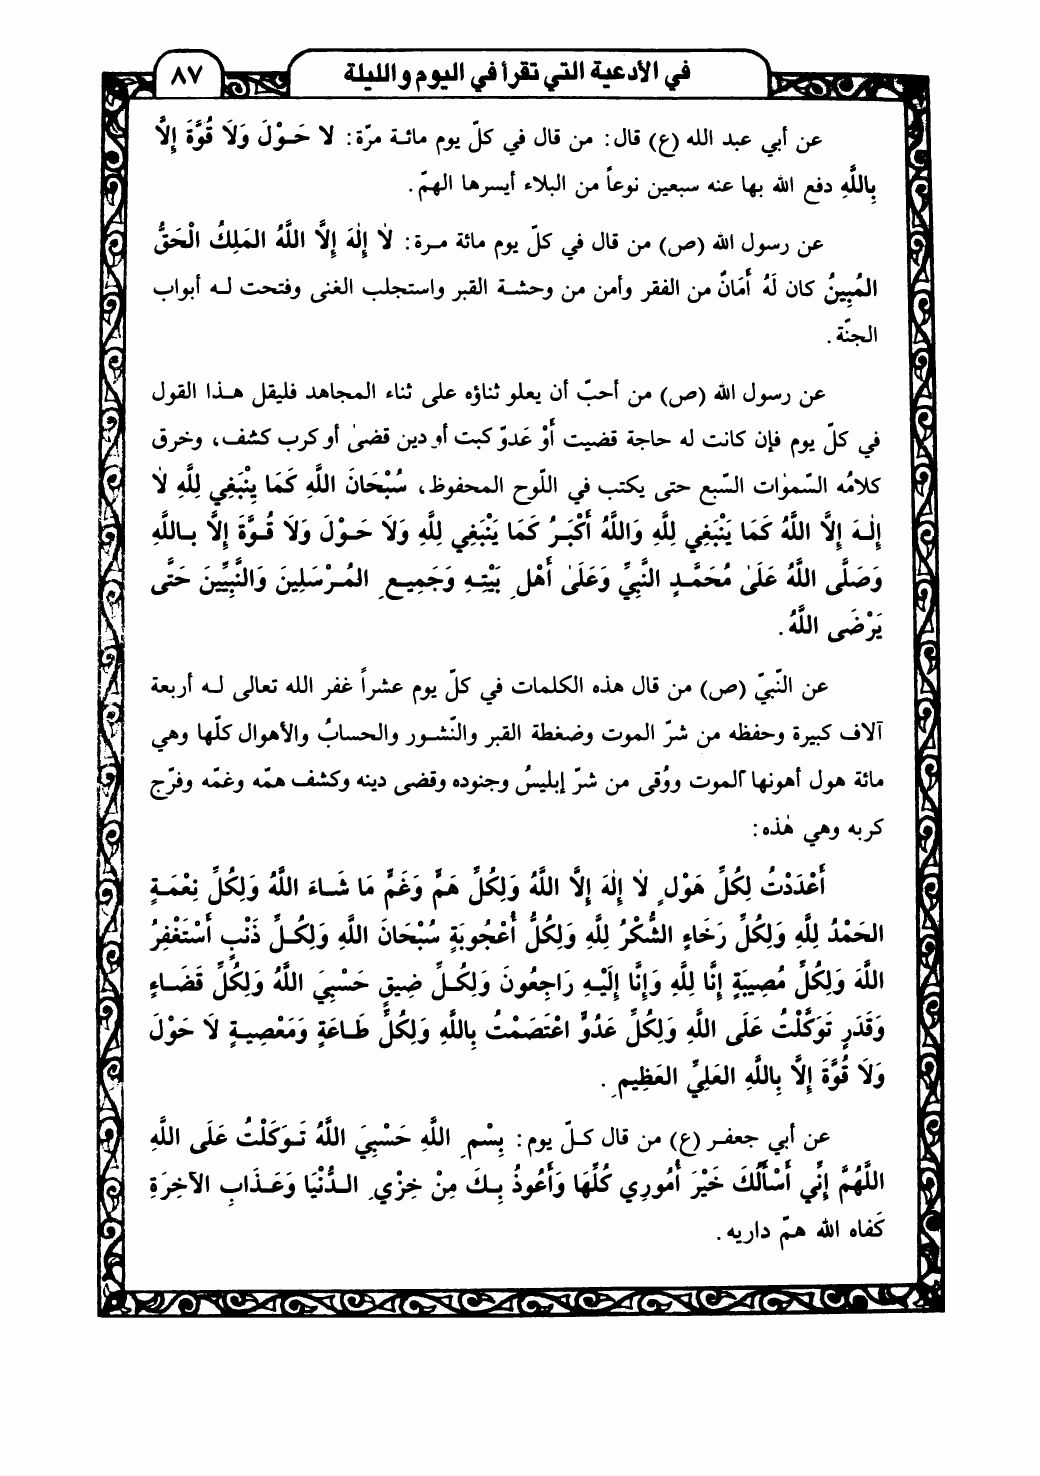 في الأدعية التي تقرأ في اليوم والليلة ٨٧
عن أبي عبد الله (ع) قال: من قال في كلّ يوم مائة مرّة: لا حَوْلَ وَلَا قُوَّةَ إِلَّا
بِاللَّهِ دفع الله بها عنه سبعين نوعاً من البلاء أيسرها الهمّ.
عن رسول الله (ص) من قال في كلّ يوم مائة مرة: لَا إِلٰهَ إِلَّا اللَّهُ المَلِكُ الْحَقُّ
المُبِينُ كان لَهُ أَمَانٌ من الفقر وأمن من وحشة القبر واستجلب الغنى وفتحت له أبواب
الجنّة.
عن رسول الله (ص) من أحبّ أن يعلو ثناؤه على ثناء المجاهد فليقل هذا القول
في كلّ يوم فإن كانت له حاجة قضيت أَوْ عَدوّ كبت أو دين قضىٰ أو كرب كشف، وخرق
كلامُه السّموٰات السّبع حتى يكتب في اللّوح المحفوظ، سُبْحَانَ اللَّهِ كَمَا يَنْبَغِي لِلَّهِ لَا
إِلٰهَ إِلَّا اللَّهُ كَمَا يَنْبَغِي لِلَّهِ وَاللَّهُ أَكْبَرُ كَمَا يَنْبَغِي لِلَّهِ وَلَا حَوْلَ وَلَا قُوَّةَ إِلَّا بِاللَّهِ
وَصَلَّى اللَّهُ عَلَىٰ مُحَمَّدٍ النَّبِيِّ وَعَلَىٰ أَهْلِ بَيْتِهِ وَجَمِيعِ المُرْسَلِينَ وَالنَّبِيِّينَ حَتَّى
يَرْضَى اللَّهُ.
عن النّبيّ (ص) من قال هذه الكلمات في كلّ يوم عشراً غفر الله تعالى له أربعة
آلاف كبيرة وحفظه من شرّ الموت وضغطة القبر والنّشور والحسابُ والأهوال كلّها وهي
مائة هول أهونها الموت ووُقى من شرّ إبليسُ وجنوده وقضى دينه وكشف همّه وغمّه وفرّج
كربه وهي هٰذه:
أَعْدَدْتُ لِكُلِّ هَوْلٍ لَا إِلٰهَ إِلَّا اللَّهُ وَلِكُلِّ هَمٍّ وَغَمٍّ مَا شَاءَ اللَّهُ وَلِكُلِّ نِعْمَةٍ
الحَمْدُ لِلَّهِ وَلِكُلِّ رَخَاءٍ الشُّكْرُ لِلَّهِ وَلِكُلِّ أُعْجُوبَةٍ سُبْحَانَ اللَّهِ وَلِكُلِّ ذَنْبٍ أَسْتَغْفِرُ
اللَّهَ وَلِكُلِّ مُصِيبَةٍ إِنَّا لِلَّهِ وَإِنَّا إِلَيْهِ رَاجِعُونَ وَلِكُلِّ ضِيقٍ حَسْبِيَ اللَّهُ وَلِكُلِّ قَضَاءٍ
وَقَدَرٍ تَوَكَّلْتُ عَلَى اللَّهِ وَلِكُلِّ عَدُوٍّ اعْتَصَمْتُ بِاللَّهِ وَلِكُلِّ طَاعَةٍ وَمَعْصِيةٍ لَا حَوْلَ
وَلَا قُوَّةَ إِلَّا بِاللَّهِ العَلِيِّ العَظِيمِ.
عن أبي جعفر (ع) من قال كلّ يوم: بِسْمِ اللَّهِ حَسْبِيَ اللَّهُ تَوَكَلْتُ عَلَى اللَّهِ
اللَّهُمَّ إِنِّي أَسْأَلُكَ خَيْرَ أُمُورِي كُلِّهَا وَأَعُوذُ بِكَ مِنْ خِزْيِ الدُّنْيَا وَعَذَابِ الآخِرَةِ
كَفاه الله همّ داريه.